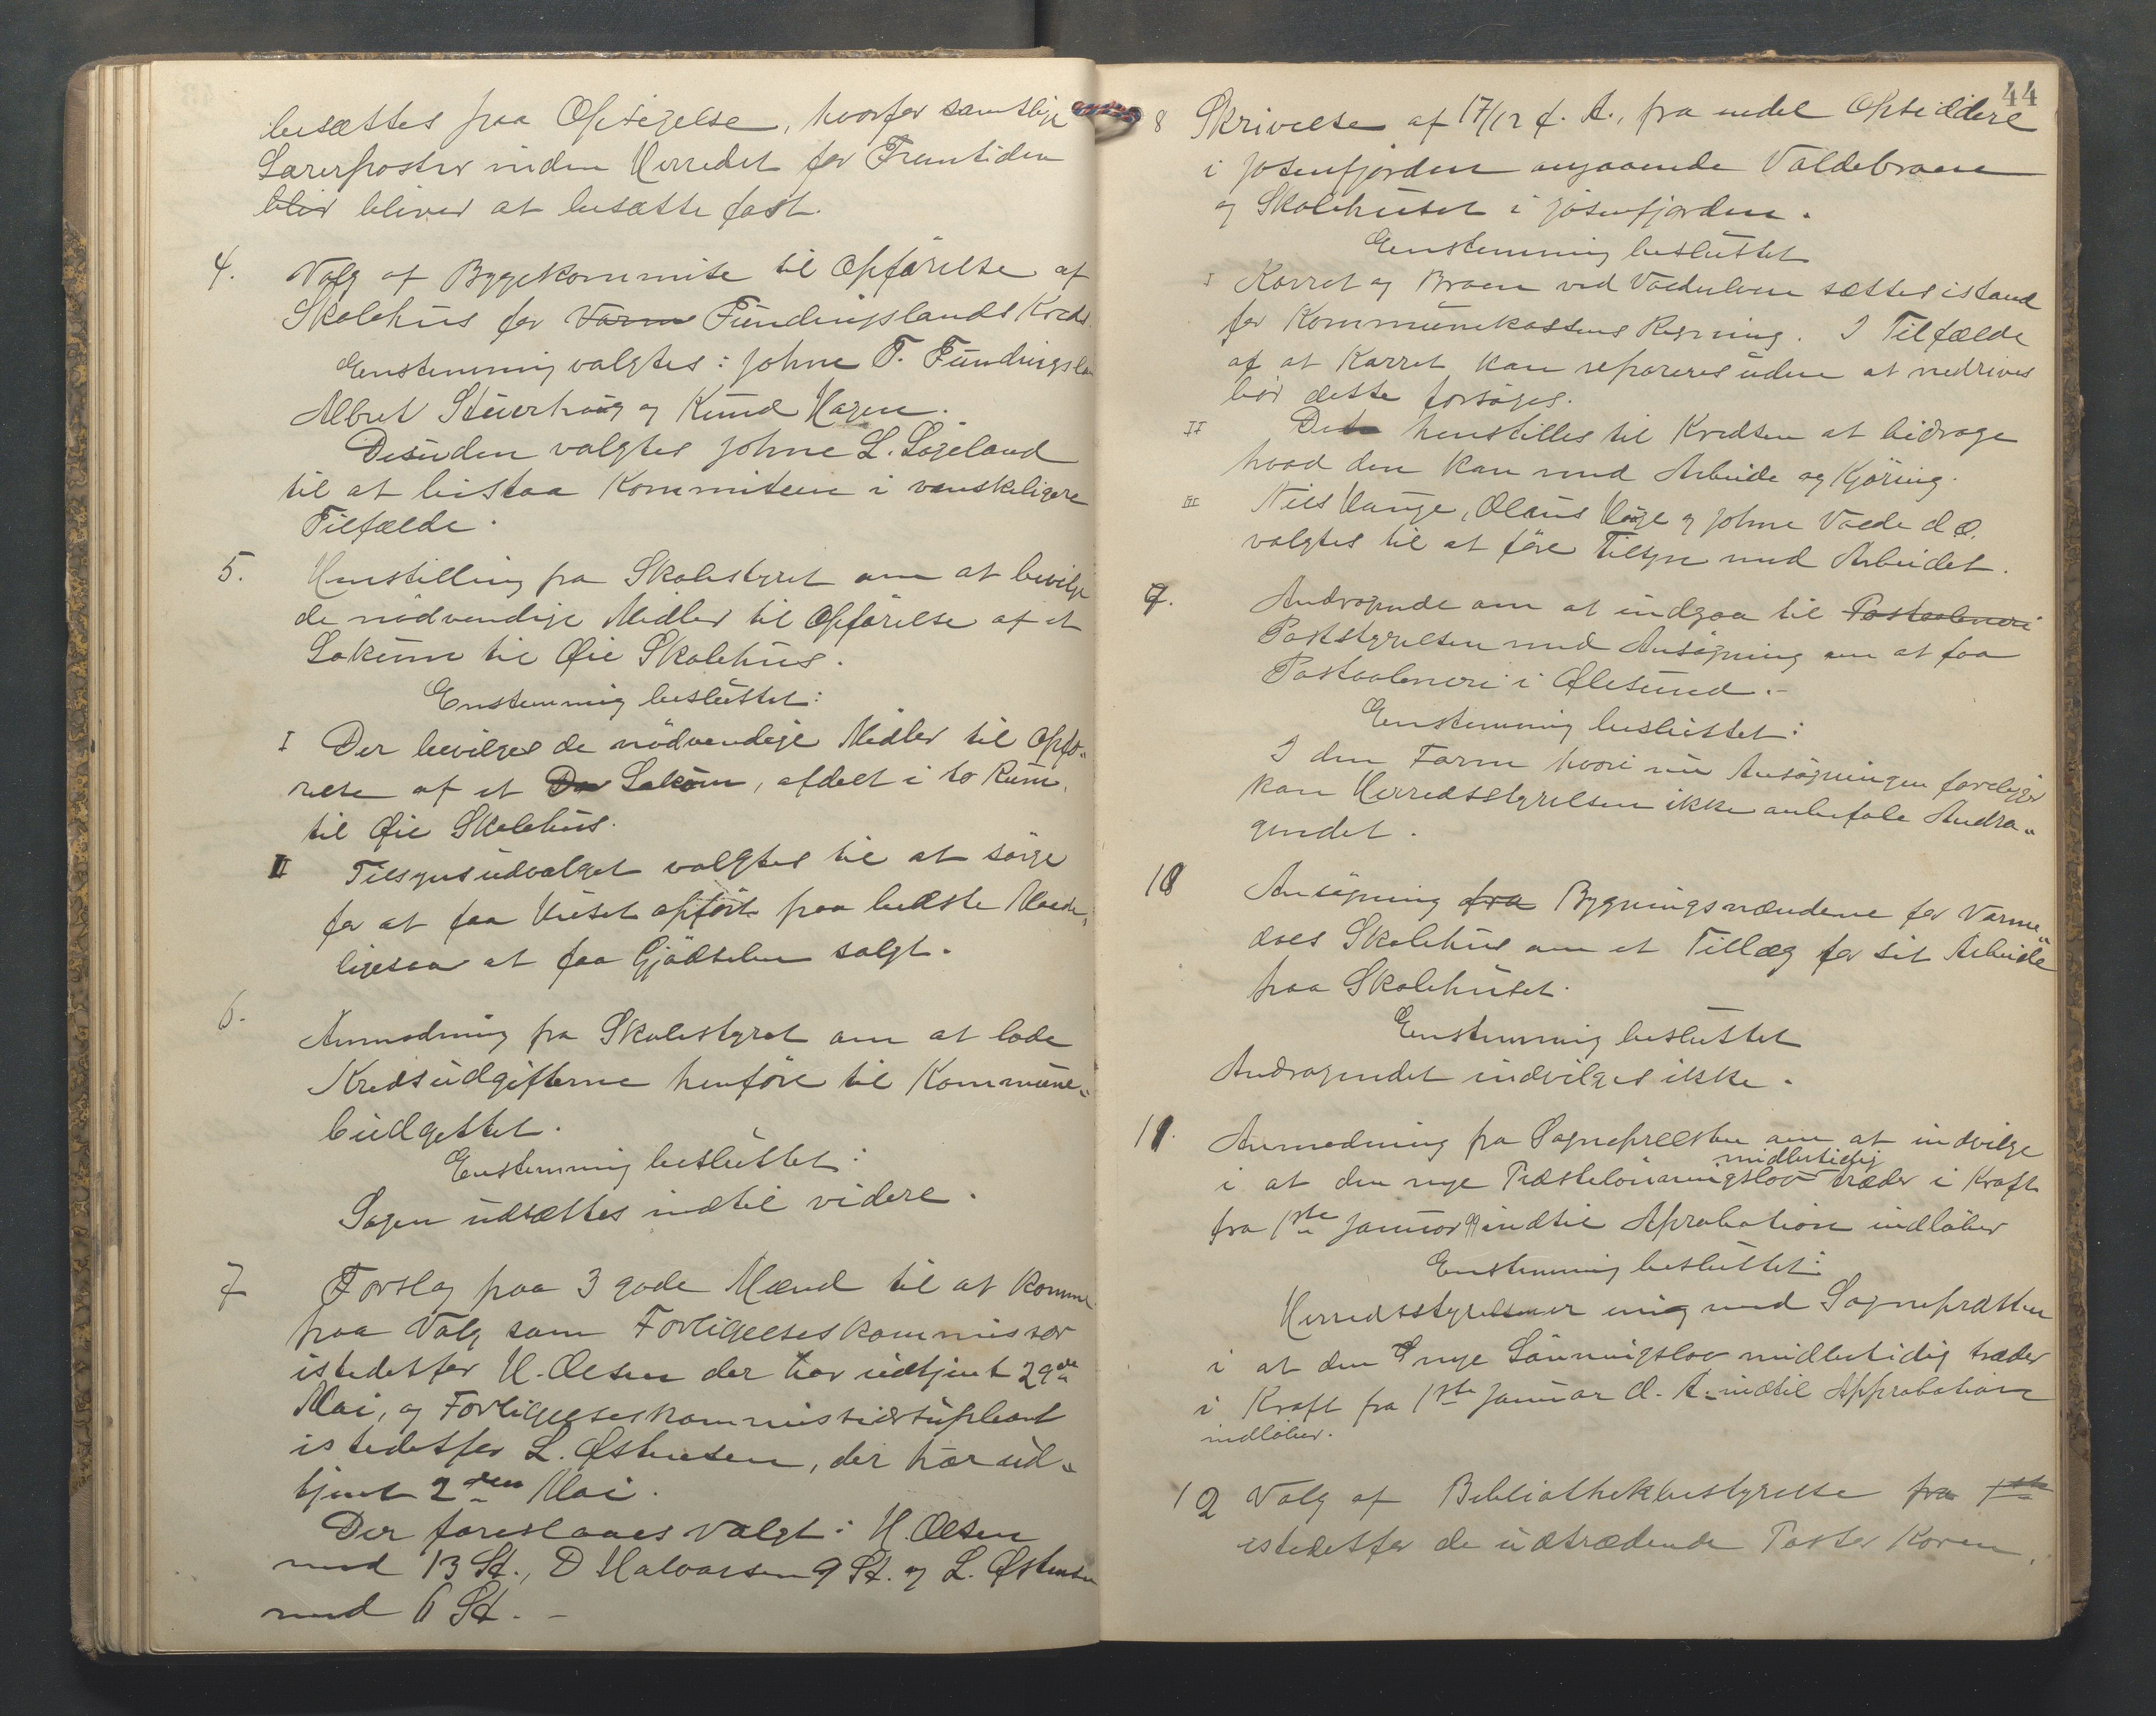 besættes paa Opsigelse, hvorfor samtlige
Lærerposter inden Herredet for Fremtiden
bliv bliver at besætte fast.
4. Valg af Byggekommite til Opførelse af
Skolehus for Varm Fundingslands Kreds.
Enstemmig valgtes: Johne T. Fundingsland
Albret Stuerhaug og Knud Hagen.
Desuden valgtes Johne L. Løgeland
til at bistaa Kommiteen i vanskeligere
Tilfælde.
5. Henstilling fra Skolestyret om at bevilge
de nødvendige Midler til Opførelse af et
Lokum til Øie Skolehus.
Enstemmig besluttet:
I Der bevilges de nødvendige Midler til Opfø-
relse af et Do Lokum, afdelt i to Rum,
til Øie Skolehus.
II Tilsynsudvalget valgtes til at sørge
for at faa Huset opført paa bedste Maade,
ligesaa at faa Gjødselen solgt.
6. Anmodning fra Skolestyret om at lade
Kredsudgifterne henføre til Kommune-
budgettet.
Enstemmig besluttet:
Sagen udsættes indtil videre.
7 Forslag paa 3 gode Mænd til at komme
paa Valg som Forligelseskommissær
istedetfor H. Olsen der har udtjent 29de
Mai, og Forligelseskommissærsupleant
istedetfor L. Østensen, der har ud-
tjent 2den Mai.
Der foreslaaes valgt: H. Olsen
med 13 St., D Halvorsen 9 St. og L. Østensen
med 6 St. -
44
8 Skrivelse af 17/12 f. A., fra endel Opsiddere
i Jøsenfjorden angaaende Valdebroen
og Skolehuset i Jøsenfjorden.
Enstemmig besluttet
I Karret og Broen ved Vadeelven sættes istand
for Kommunekassens Regning. I Tilfælde
af at Karret kan repareres uden at nedrives
bør dette forsøges.
II Dets henstilles til Kredsen at bidrage
hvad den kan med Arbeide og Kjøring.
III Nils Hauge, Olaus Hage og Johne Valde d.æ.
valgtes til at føre Tilsyn med Arbeidet.
9. Andragende om at indgaa til Postaabneri
Poststyrelsen med Ansøgning om at faa
Postaabneri i Ølesund. -
Enstemmig besluttet:
I den Form hvori nu Ansøgningen foreligger
kan Herredsstyrelsen ikke anbefale Andra-
gendet.
10 Ansøgning fra Bygningsmændene for Varme-
daes Skolehus om et Tillæg for sit Arbeide
paa Skolehuset.
Enstemmig besluttet
Andragendet indvilges ikke.
11. Anmodning fra Sognepresten om at indvilge
midlertidig
i at den nye Præstelønningslov træder i Kraft
fra 1ste Januar 99 indtil Aprobation indløber
Enstemmig besluttet:
Herredsstyrelsen er enig med Sognepræsten
i at den nye Lønningslov midlertidig træder
i Kraft fra 1ste Januar d. A. indtil Approbation
indløber.
12 Valg af Bibliothekbestyrelse fra 1ste
istedetfor de udtrædende Pastor Koren,